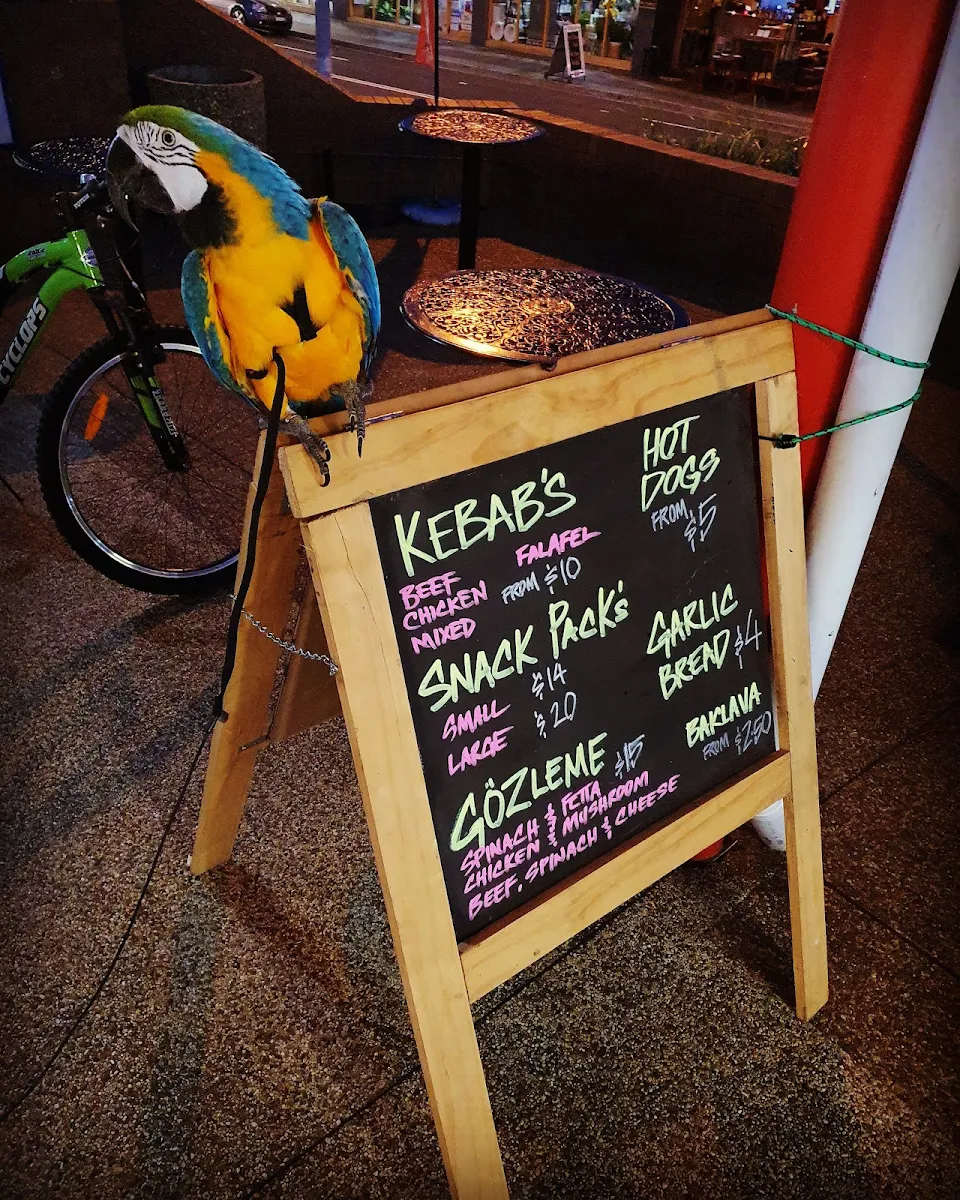 KEBAB'S
BEEF
CHICKEN
MIXED
FALAFEL
FROM $10
SNACK PACK'S
SMALL $14
LARGE $20
GÖZLEME $15
SPINACH & FETTA
CHICKEN & MUSHROOM
BEEF, SPINACH & CHEESE
HOT
DOGS
FROM
$5
GARLIC
BREAD $4
BAKLAVA
FROM $2.50
CYCLOPS